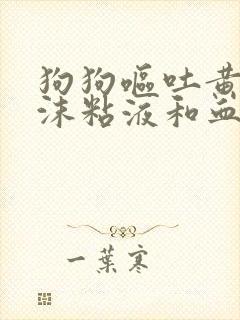 狗狗呕吐黄
沫粘液和血
一葉寒